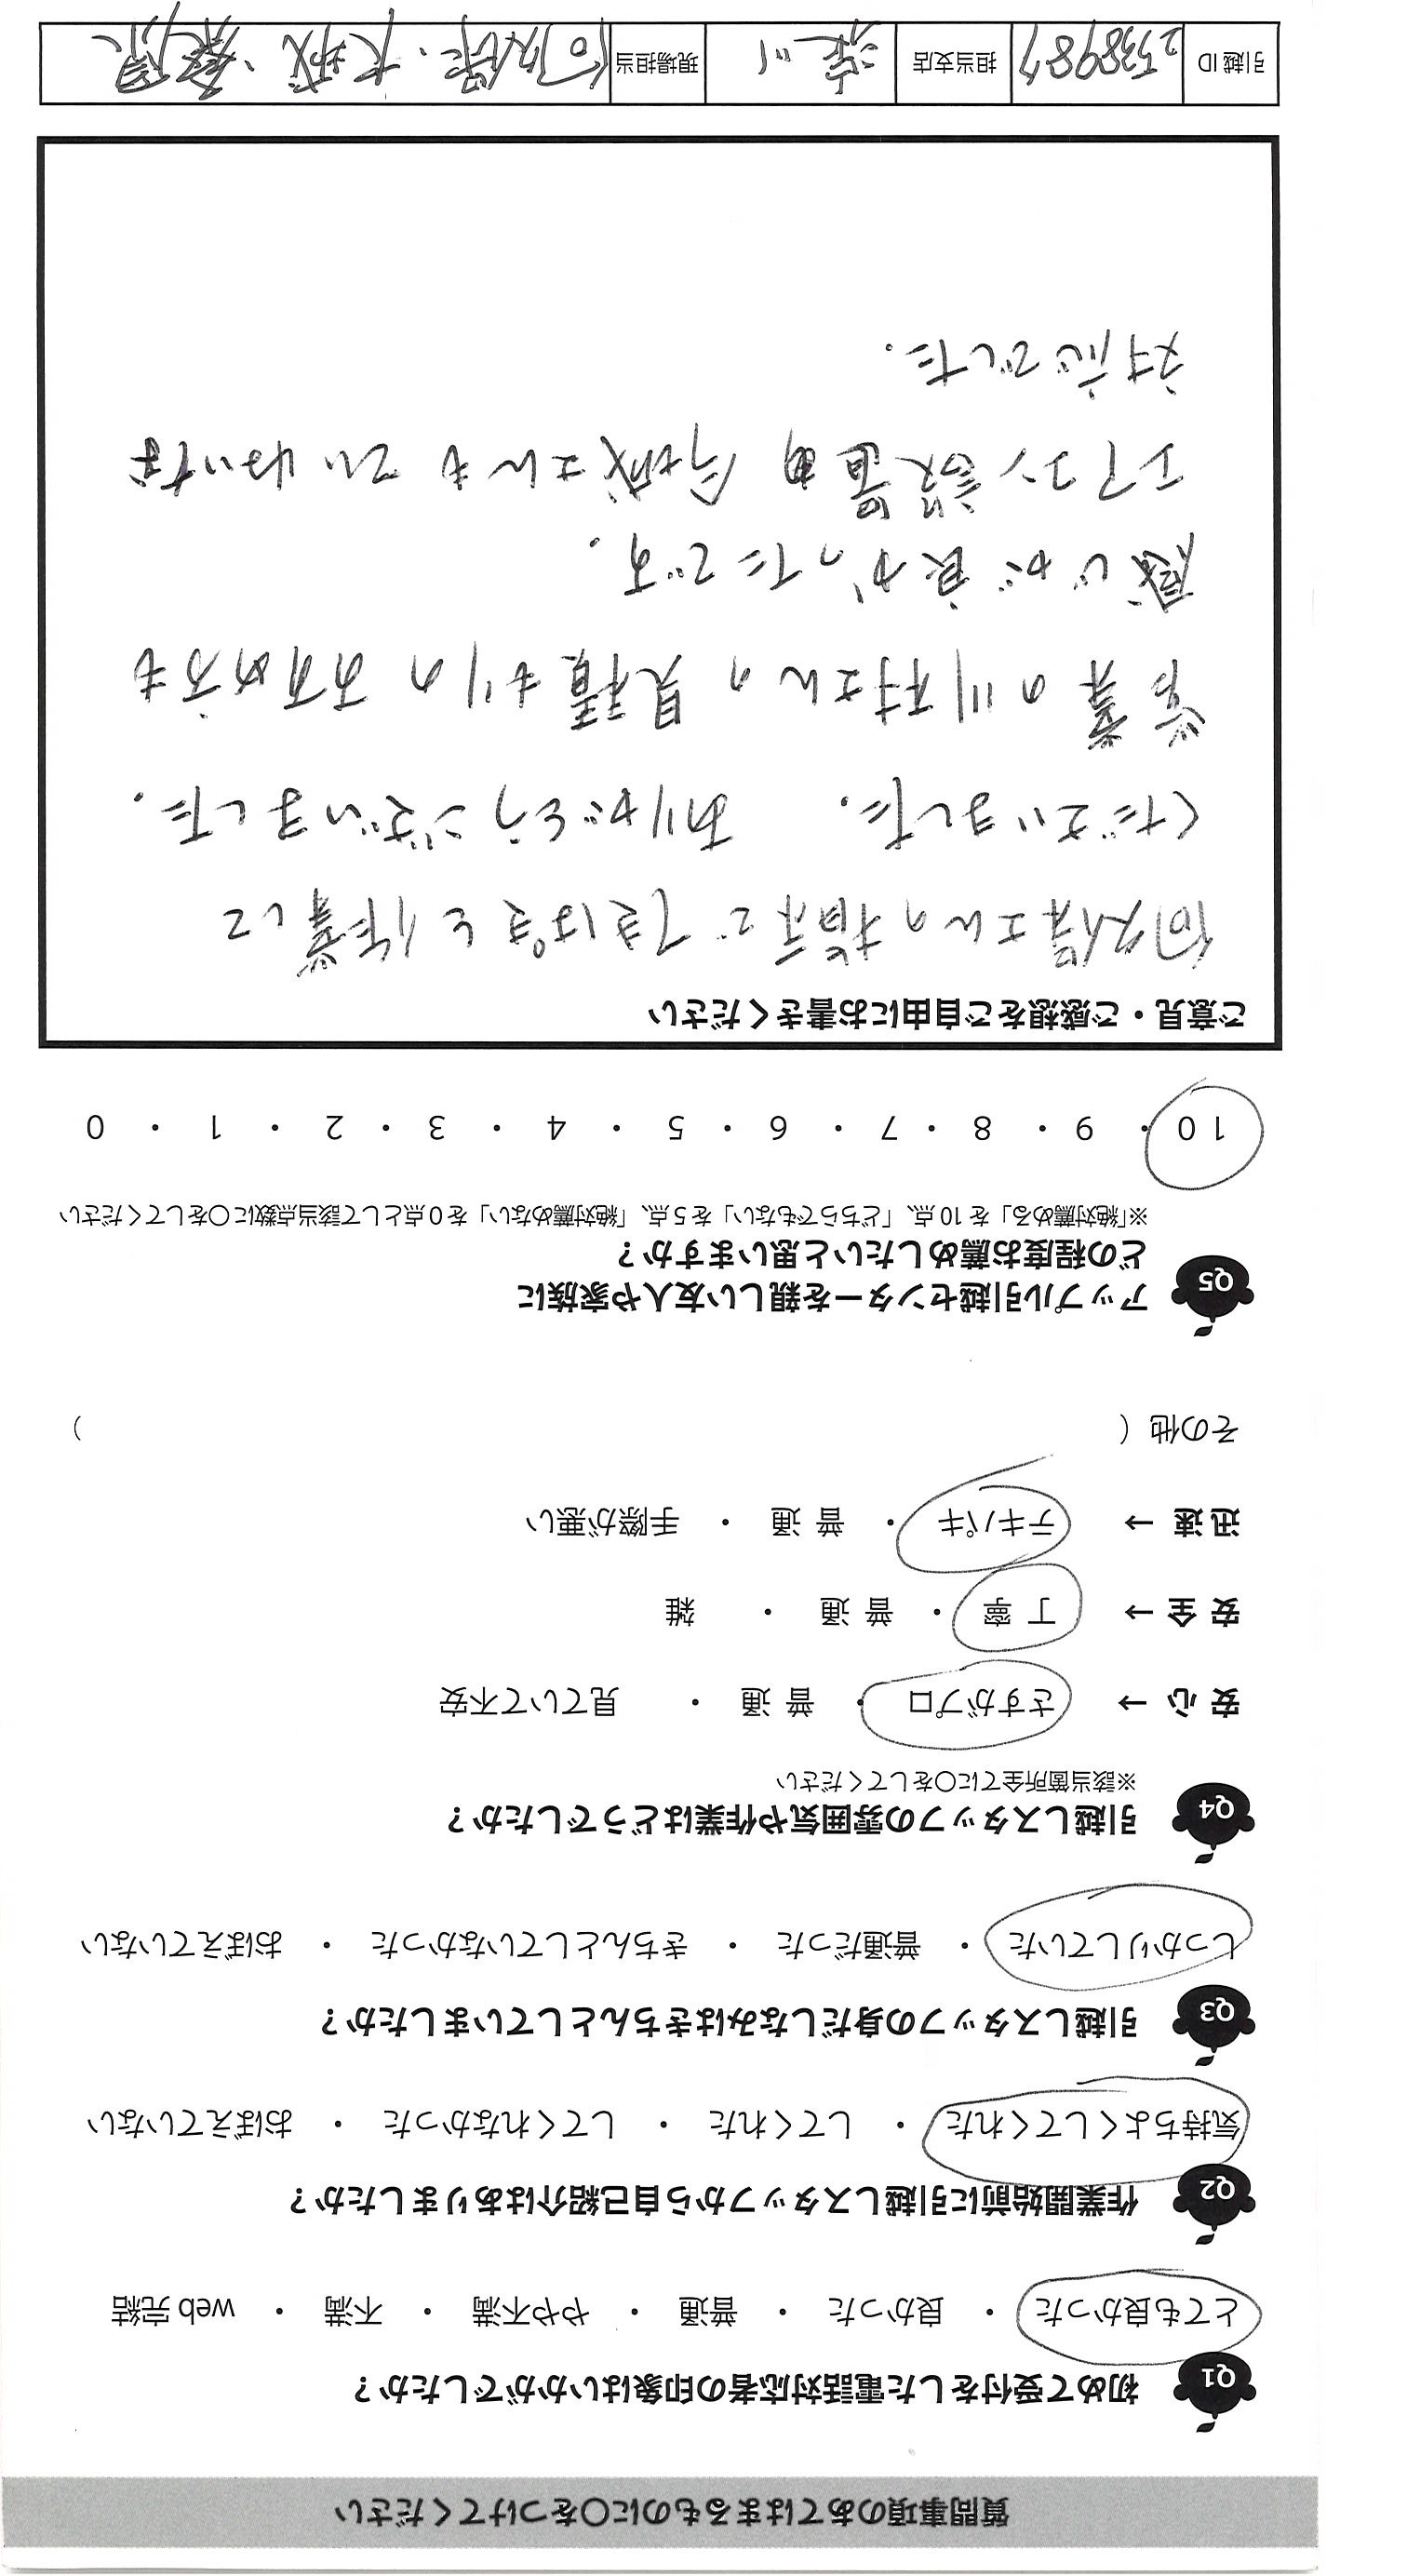 質問事項のあてはまるものに〇をつけてください
Q1 初めて受付をした電話対応者の印象はいかがでしたか？
とても良かった ・ 良かった ・ 普通 ・ やや不満 ・ 不満 ・ web 完結
Q2 作業開始前に引越しスタッフから自己紹介はありましたか？
気持ちよくしてくれた ・ してくれた ・ してくれなかった ・ おぼえていない
Q3 引越しスタッフの身だしなみはきちんとしていましたか？
しっかりしていた ・ 普通だった ・ きちんとしていなかった ・ おぼえていない
Q4 引越しスタッフの雰囲気や作業はどうでしたか？
※該当箇所全てに〇をしてください
安 心 → さすがプロ ・ 普 通 ・ 見ていて不安
安 全 → 丁 寧 ・ 普 通 ・ 雑
迅 速 → テキパキ ・ 普 通 ・ 手際が悪い
その他（ ）
Q5 アップル引越センターを親しい友人や家族に
どの程度お薦めしたいと思いますか？
※「絶対薦める」を 10 点、「どちらでもない」を 5 点、「絶対薦めない」を 0 点として該当点数に〇をしてください
10 ・ 9 ・ 8 ・ 7 ・ 6 ・ 5 ・ 4 ・ 3 ・ 2 ・ 1 ・ 0
ご意見・ご感想をご自由にお書きください
さんの指示で てきぱきと作業して
くださいました. ありがとうございました.
営業の川村さんの見積もりのすすめ方も
感じが良かったです.
エアコン設置の今城さんもていねいな
対応でした.
引越 ID 2538987 担当支店 現場担当